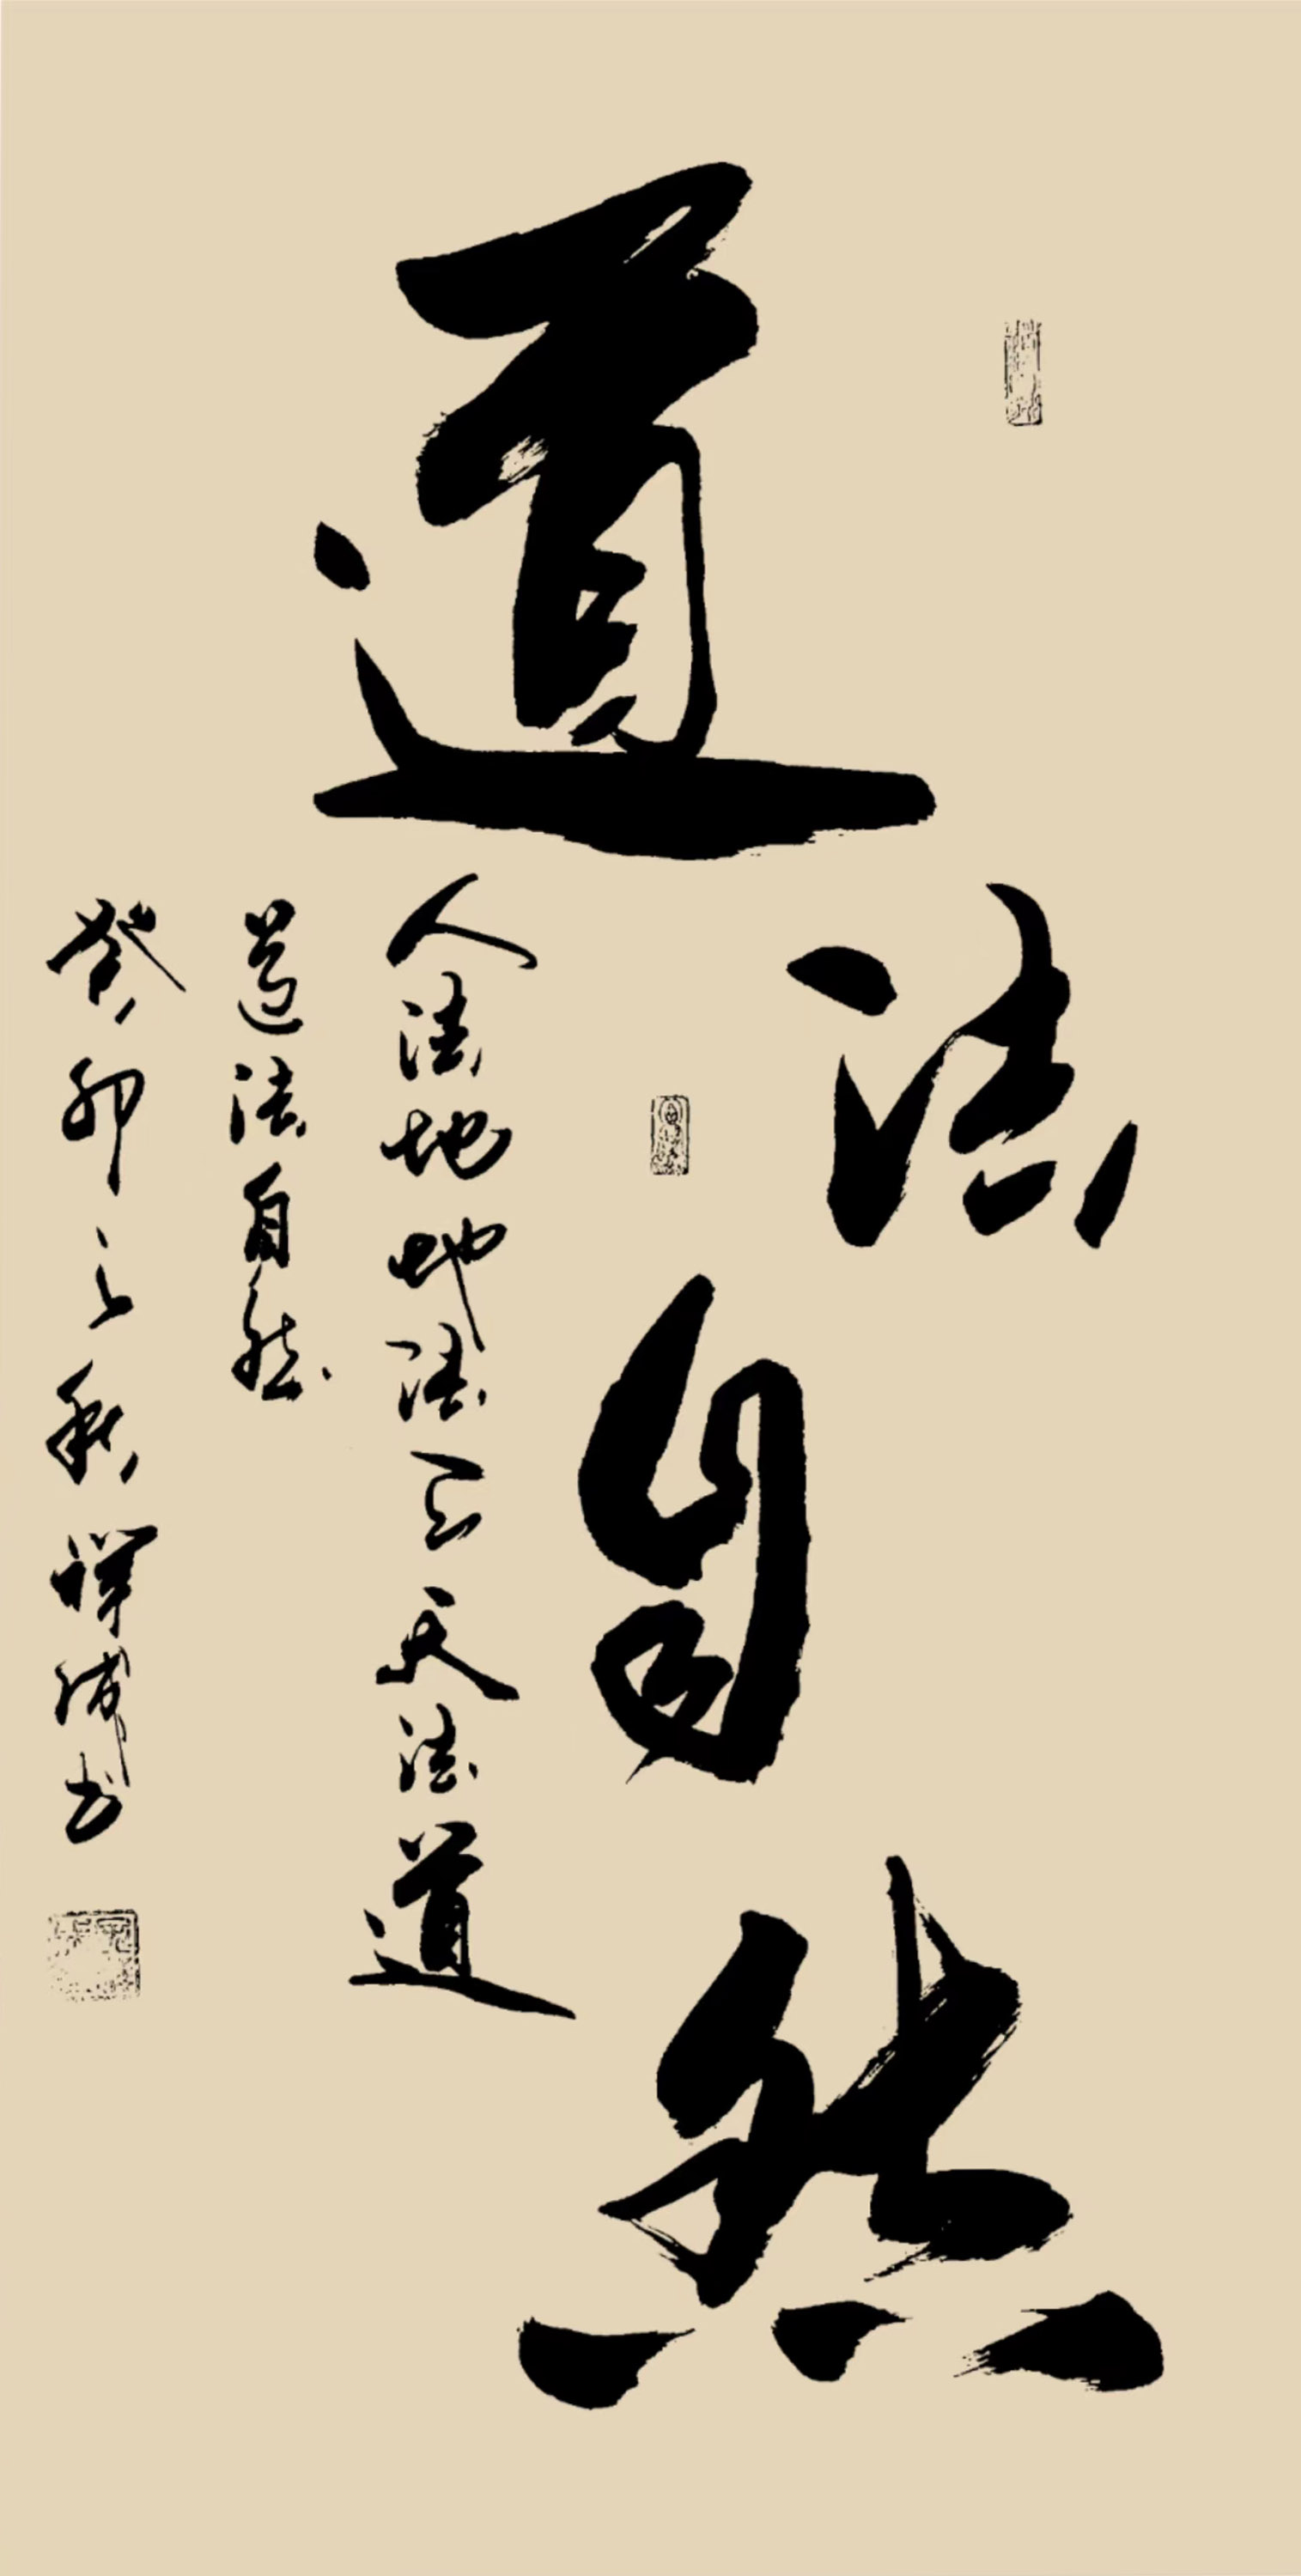 道法自然
人法地地法天天法道
道法自然
癸卯之秋禅城书